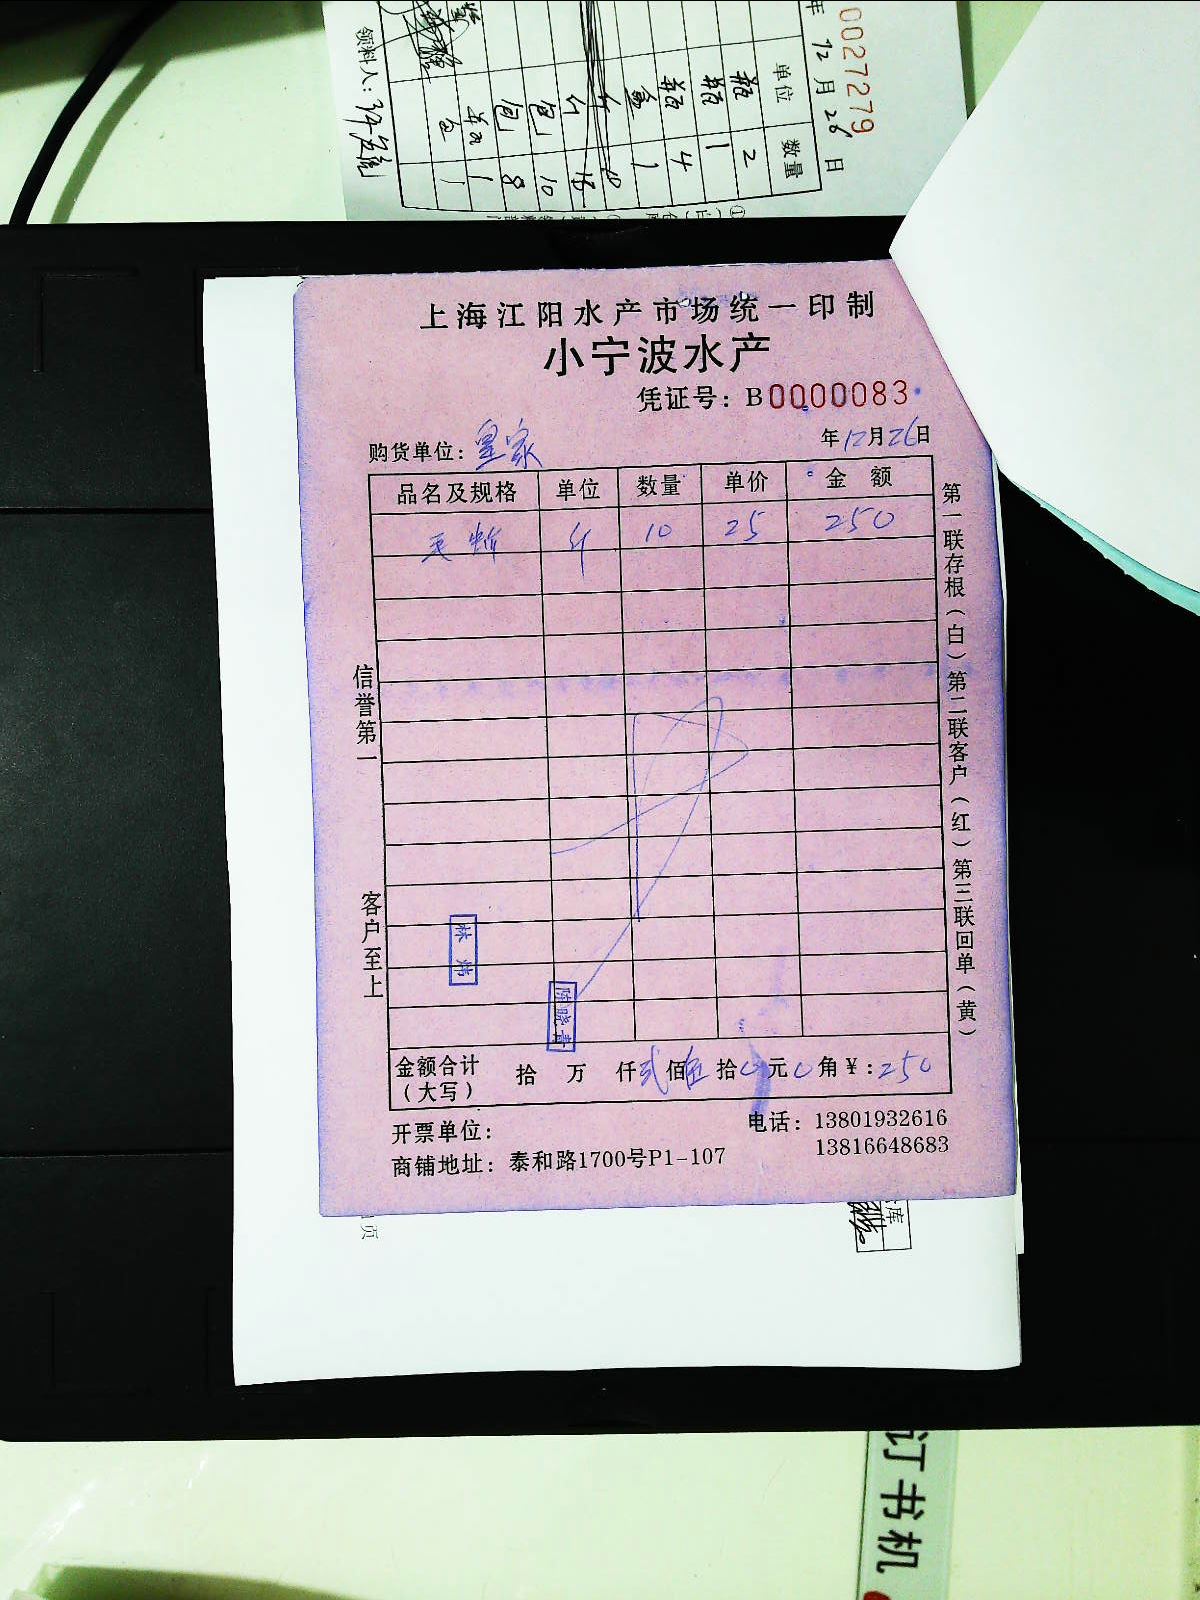 0027279
年 12 月 26 日
单位 数量
瓶 2
瓶 1
瓶 4
盒 1
斤
斤
包 10
包 8
1
1
领料人:
上海江阳水产市场统一印制
小宁波水产
凭证号: B0000083
购货单位: 皇家
年12月26日
品名及规格 单位 数量 单价 金额
斤 10 25 250
信誉第一
客户至上
第一联存根(白)第二联客户(红)第三联回单(黄)
林炜
陈晓青
金额合计(大写) 拾 万 仟贰佰伍拾0元0角¥:250
开票单位:
电话: 13801932616
13816648683
商铺地址: 泰和路1700号P1-107
页
库
订书机